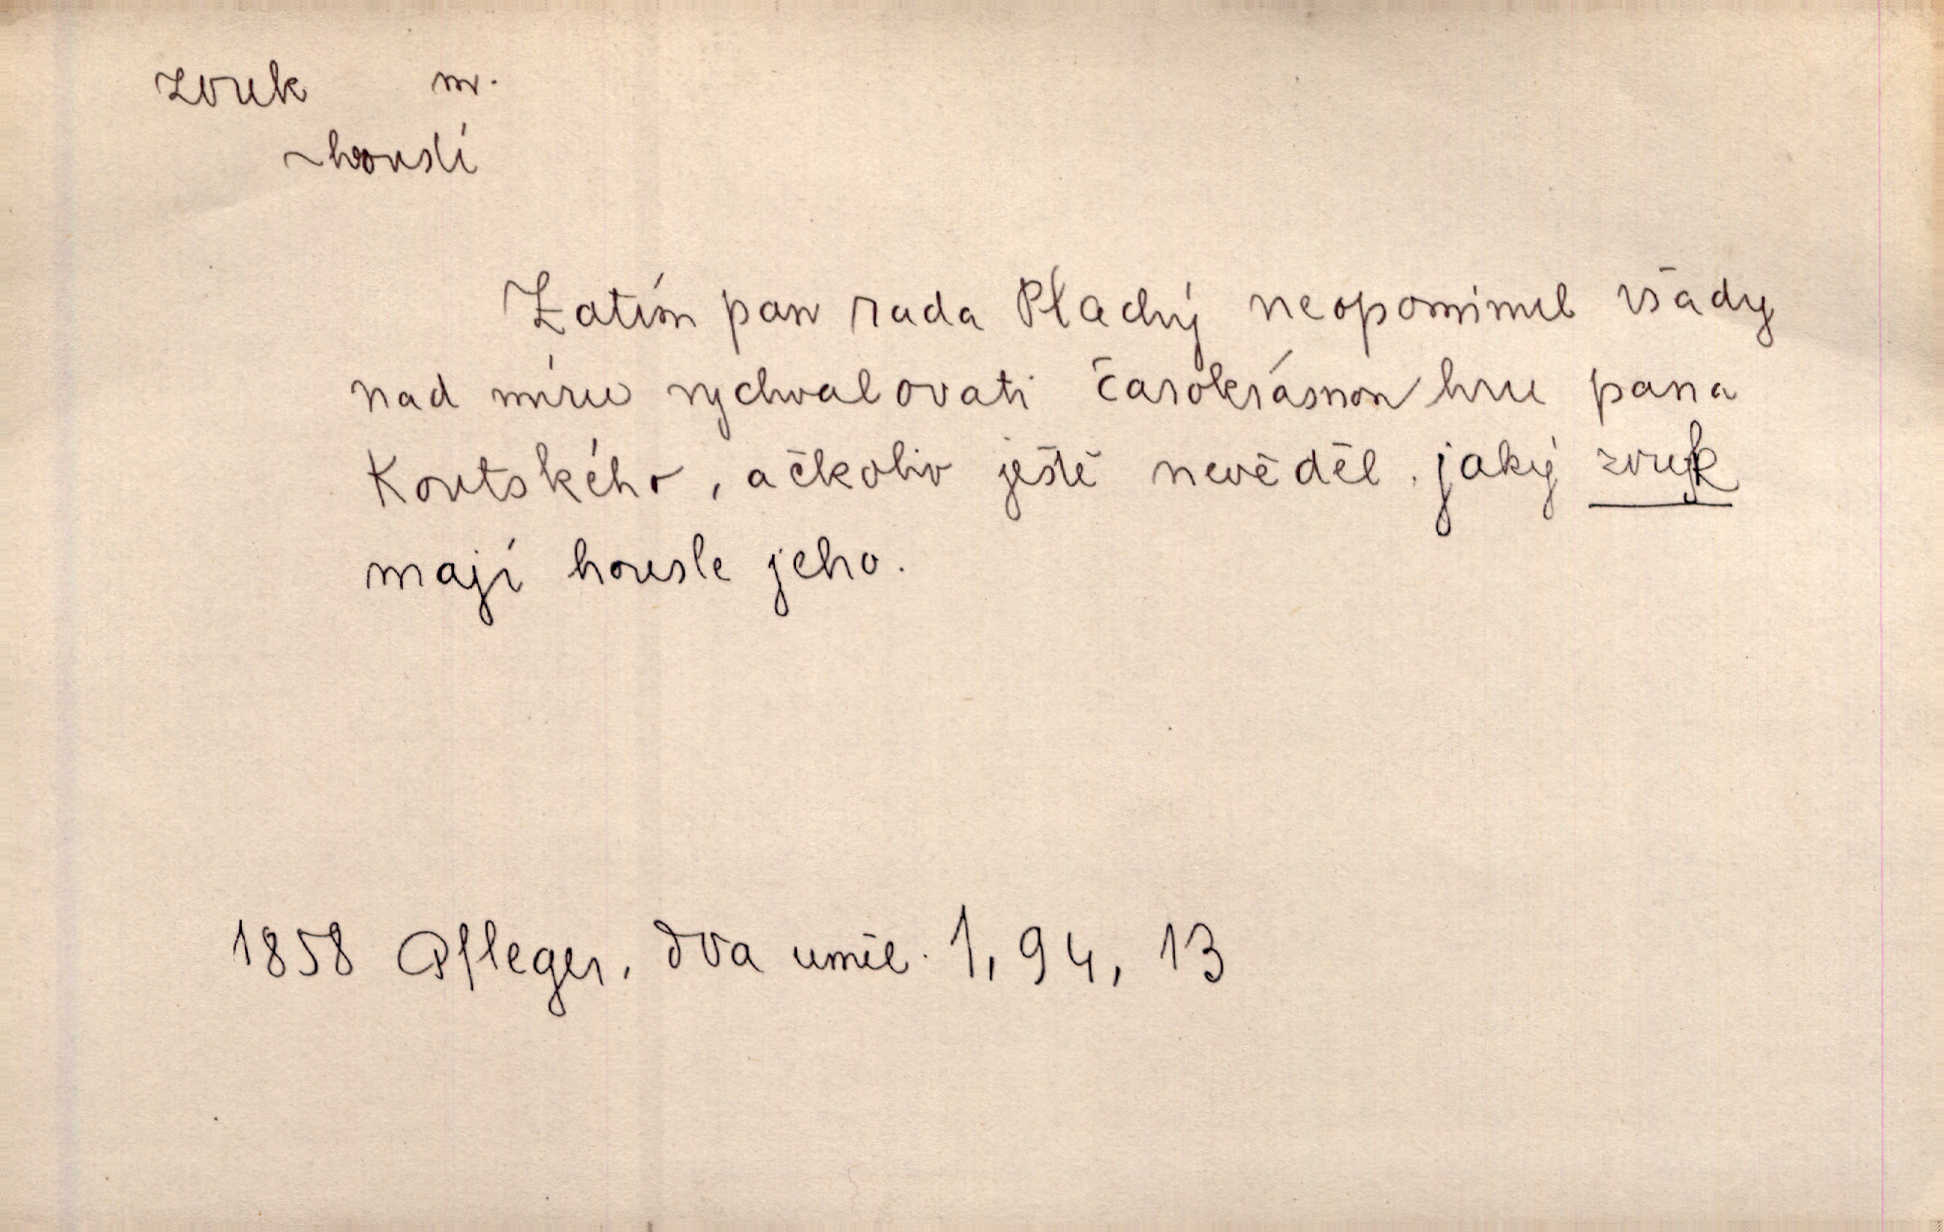 zvuk m.
~houslí
Zatím pan rada Plachý neopominul všady
nad míru vychvalovati čarokrásnou hru pana
Koutského, ačkoliv ještě nevěděl, jaký zvuk
mají housle jeho.
1858 Pfleger, dva uměl. 1, 94, 13